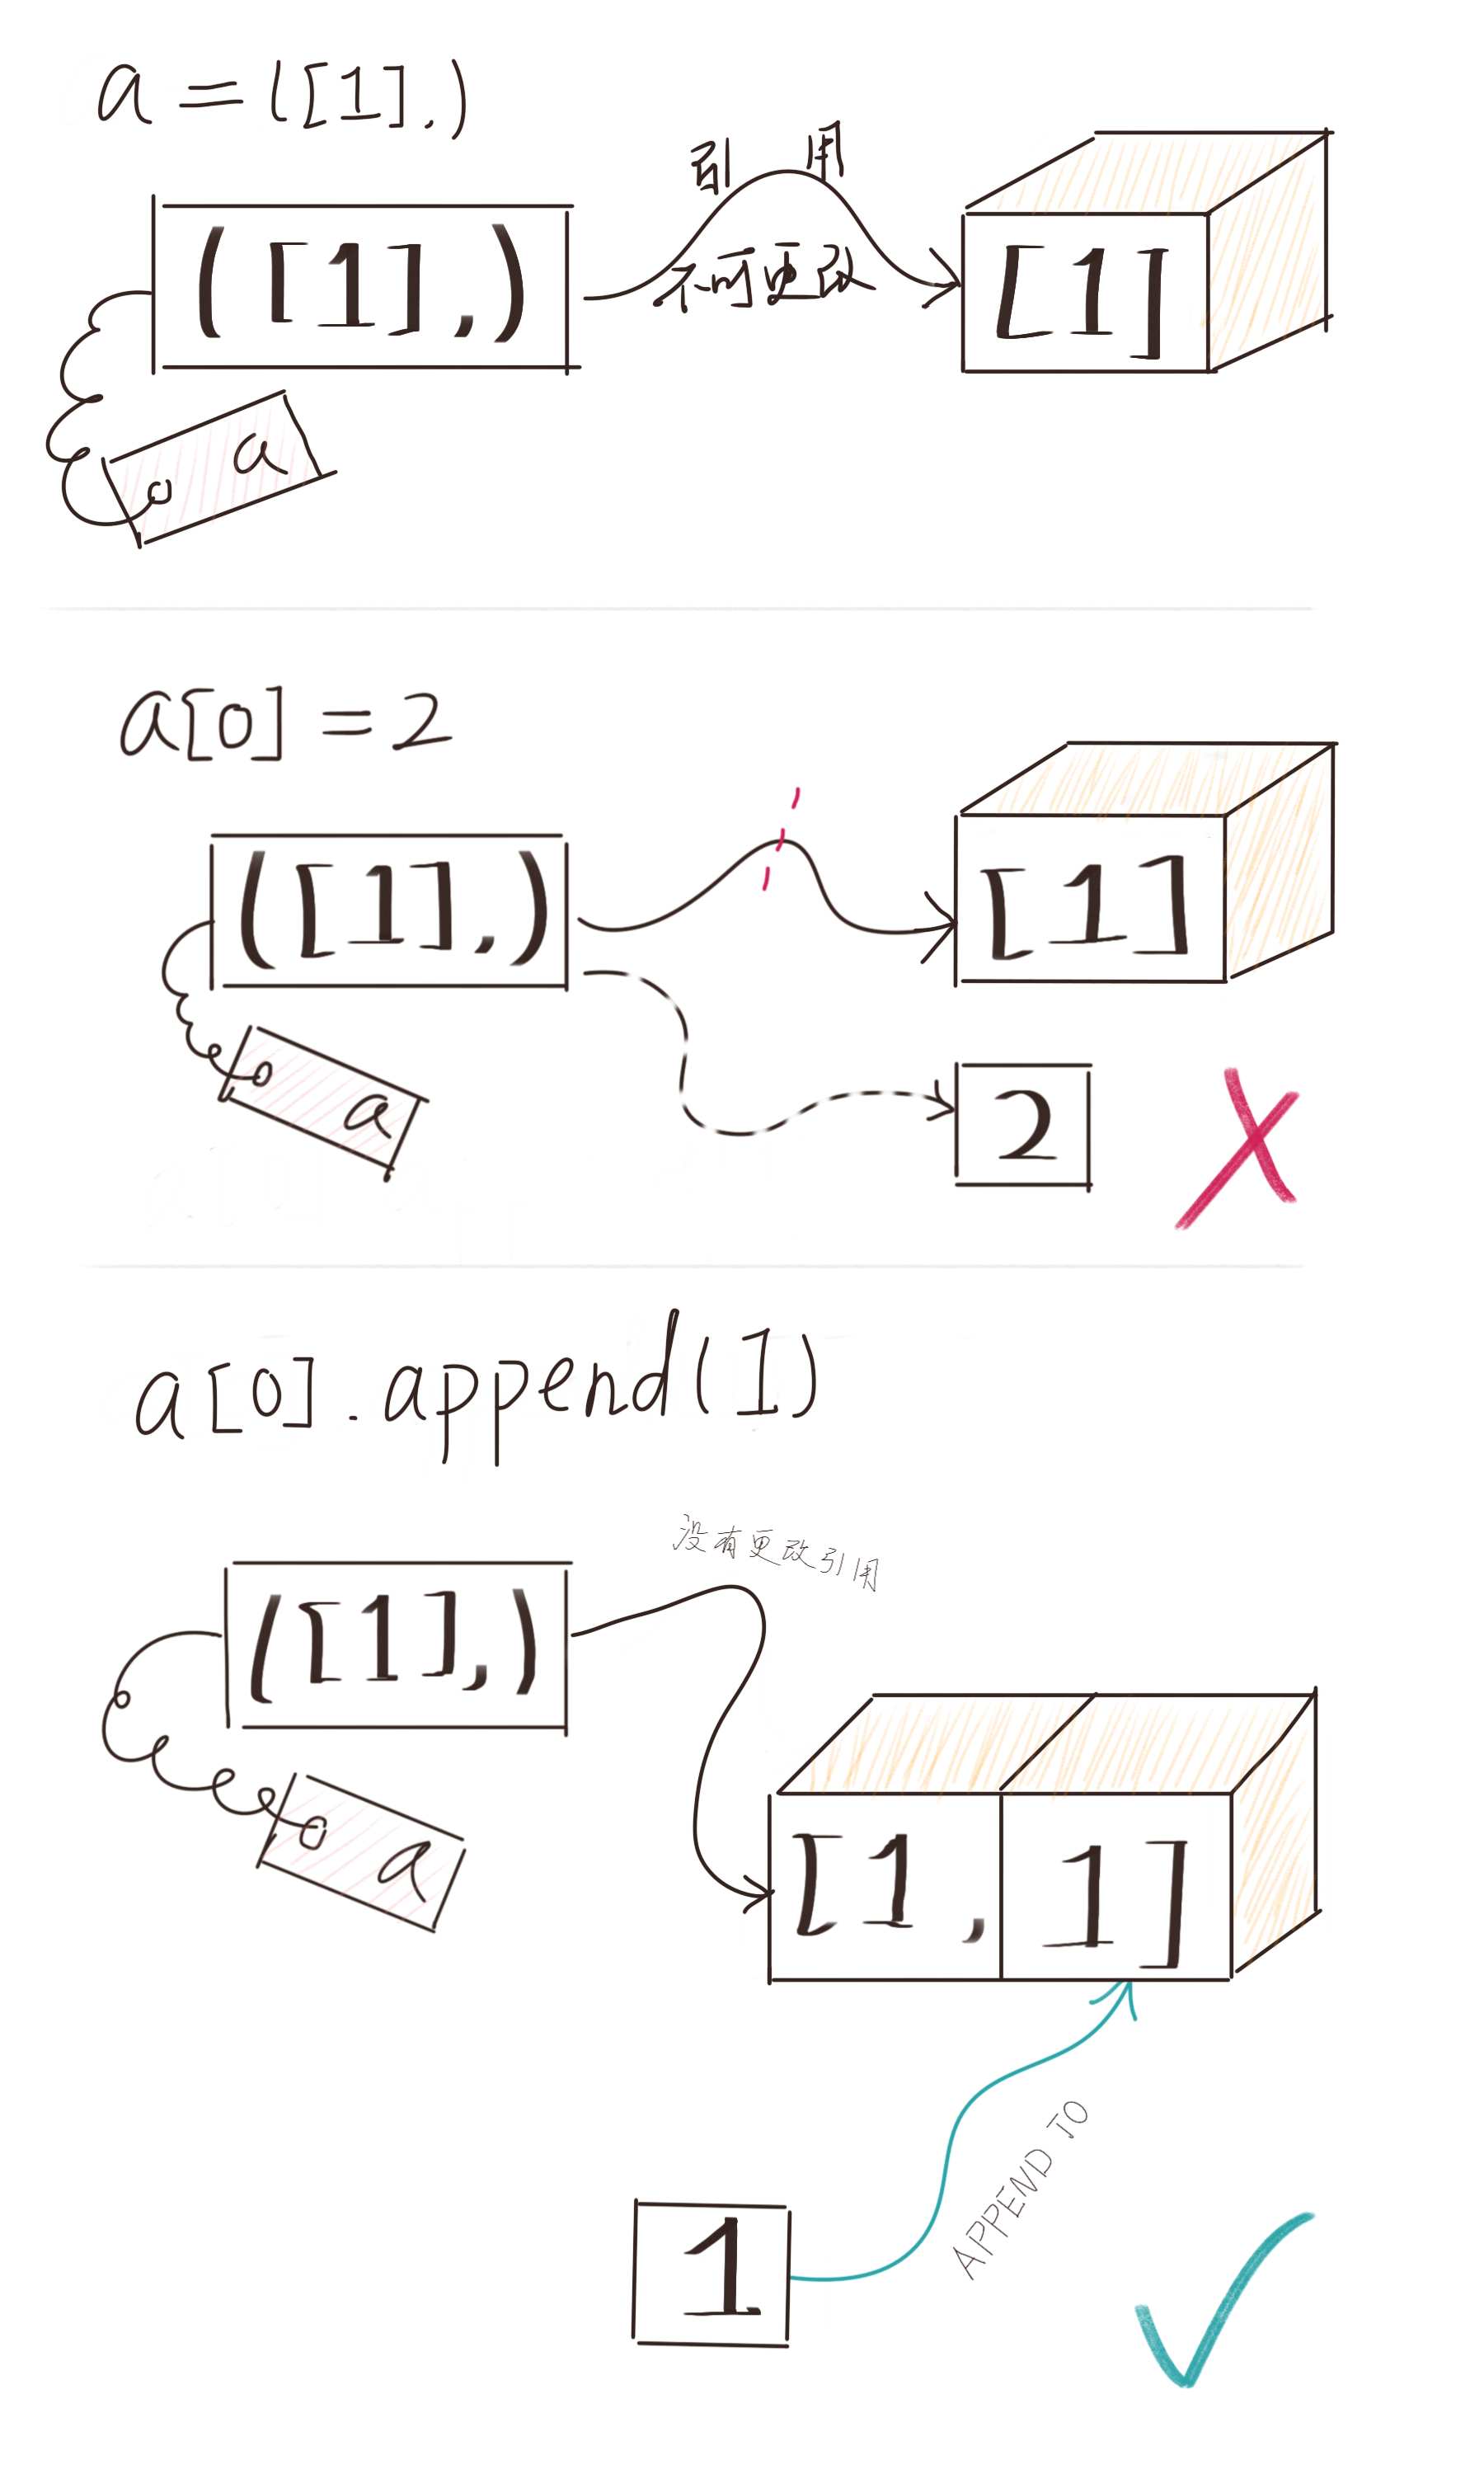 a = ([1],)
引用
([1],)
不可更改
[1]
a
a[0] = 2
([1],)
[1]
a
2
a[0].append(1)
没有更改引用
([1],)
a
[1, 1]
APPEND TO
1